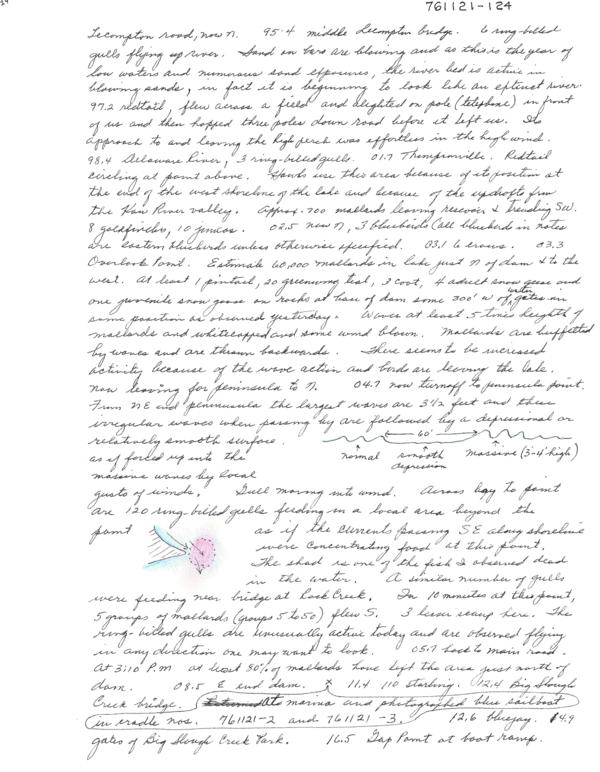 761121-124
Lecompton road, now N. 95.4 middle Lecompton bridge. 6 ring-billed
gulls flying up river. Sand on bars are blowing and as this is the year of
low waters and numerous sand exposures, the river bed is active in
blowing sands, in fact it is beginning to look like an extinct river.
97.2 redtail, flew across a field and alighted on pole (telephone) in front
of us and then hopped three poles down road before it left us. Its
approach to and leaving the high perch was effortless in the high wind.
98.4 Delaware River, 3 ring-billed gulls. 01.7 Thompsonville. Redtail
circling at point above. Hawks use this area because of its position at
the end of the west shoreline of the lake and because of the updrafts from
the Kaw River valley. Approx. 700 mallards leaving reservoir & trending SW.
8 goldfinches, 10 juncos. 02.5 now N, 3 bluebirds (all bluebirds in notes
are eastern bluebirds unless otherwise specified. 03.1 6 crows. 03.3
Overlook Point. Estimate 60,000 mallards in lake just N of dam & to the
west. At least 1 pintail, 20 greenwing teal, 3 coot, 4 adult snow geese and
one juvenile snow goose on rocks at base of dam some 300' W of water gates in
same position as observed yesterday. Waves at least 5 times height of
mallards and whitecapped and some wind blown. Mallards are buffetted
by waves and are thrown backwards. There seems to be increased
activity because of the wave action and birds are leaving the lake.
Now leaving for peninsula to N. 04.7 now turnoff to peninsula point.
From NE end peninnsula the largest waves are 3½ feet and these
irregular waves when passing by are followed by a depressional or
relatively smooth surface. 60'
as if forced up into the normal smooth depression massive (3-4' high)
massive waves by local
gusts of winds. Gull moving into wind. Across bay to point
are 120 ring-billed gulls feeding in a local area beyond the
point as if the currents passing SE along shoreline
were concentrating food at this point.
The shad is one of the fish I observed dead
in the water. A similar number of gulls
were feeding near bridge at Rock Creek. In 10 minutes at this point,
5 groups of mallards (groups 5 to 50) flew S. 3 lesser scaup here. The
ring-billed gulls are unusually active today and are observed flying
in any direction one may want to look. 05.7 back to main road.
At 3:10 P.M at least 80% of mallards have left the area just north of
dam. 08.5 E end dam. x 11.4 110 starling. 12.4 Big Slough
Creek bridge. At marina and photographed blue sailboat
in cradle nos. 761121-2 and 761121-3. 12.6 bluejay. 14.9
gates of Big Slough Creek Park. 16.5 Gap Point at boat ramp.